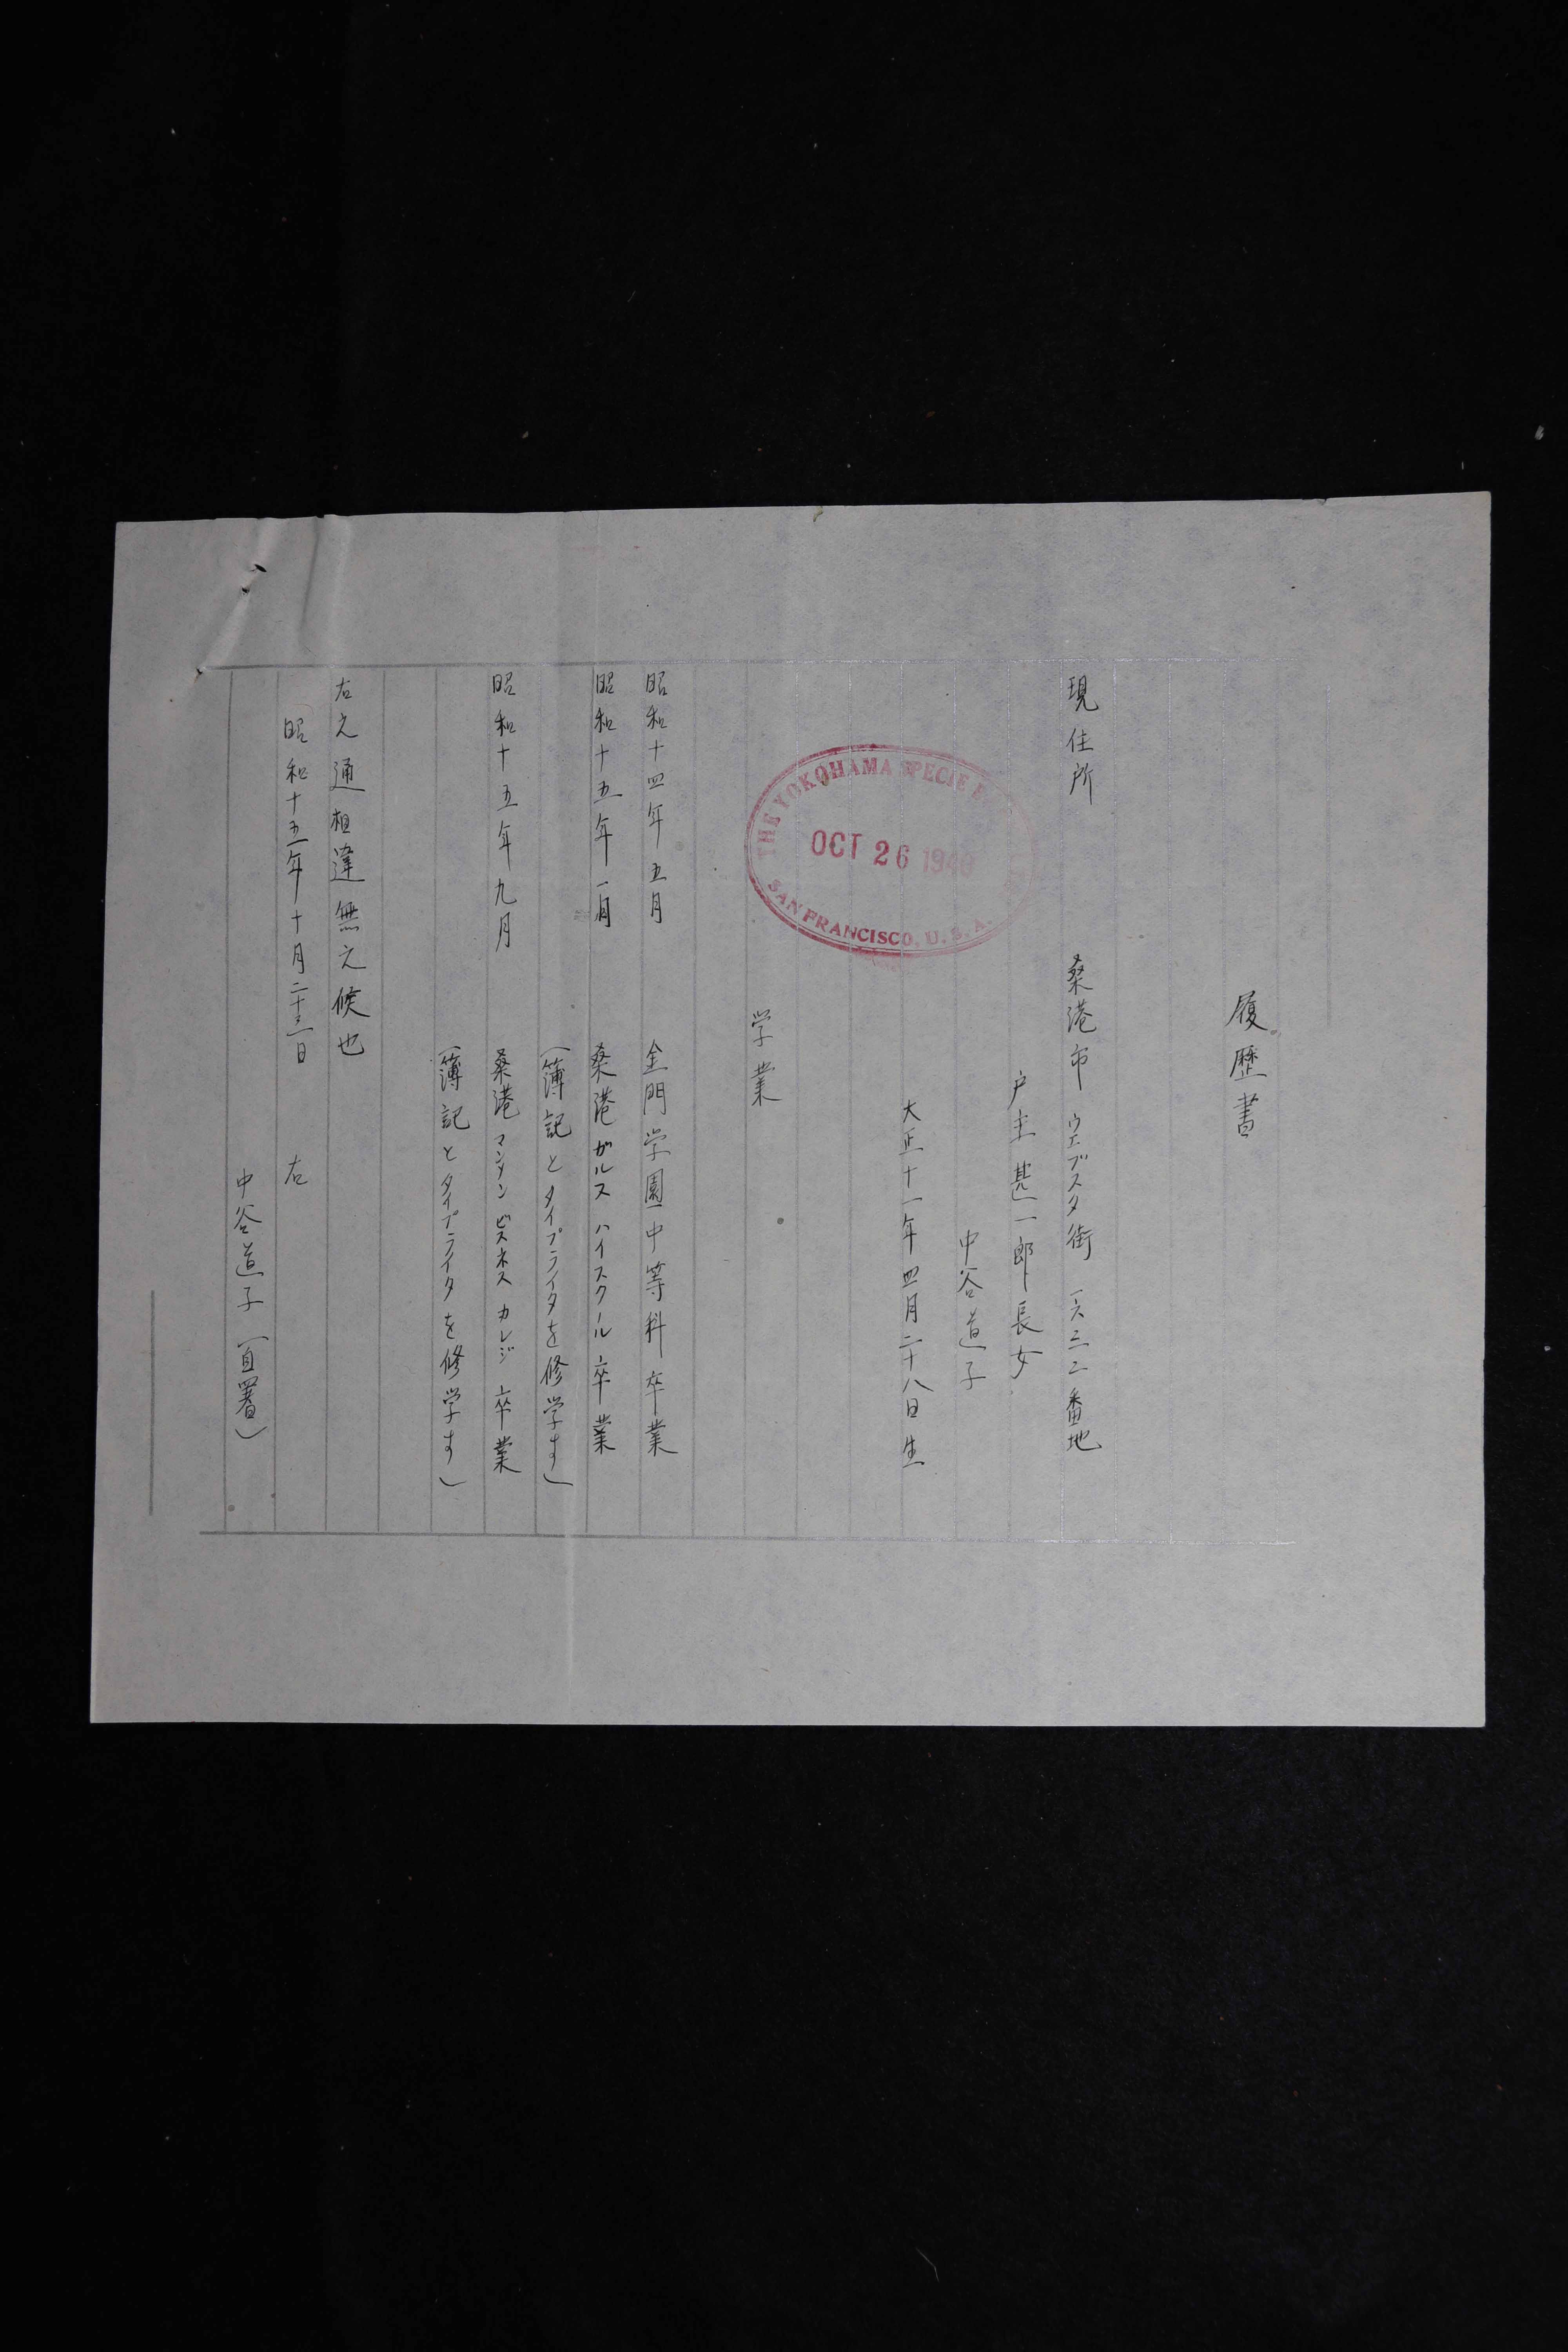 履歴書
現住所 桑港市 ウエブスタ街 一六三二番地
戸主 甚一郎 長女
中谷道子
大正十一年四月二十八日生
THE YOKOHAMA SPECIE
OCT 26 1940
SAN FRANCISCO, U.S.A.
学業
昭和十四年五月 金門学園中等科卒業
昭和十五年一月 桑港ガルスハイスクール卒業
(簿記とタイプライタを修学す)
昭和十五年九月 桑港マンソンビズネスカレジ卒業
(簿記とタイプライタを修学す)
右之通相違無之候也
昭和十五年十月二十三日 右
中谷道子(自署)